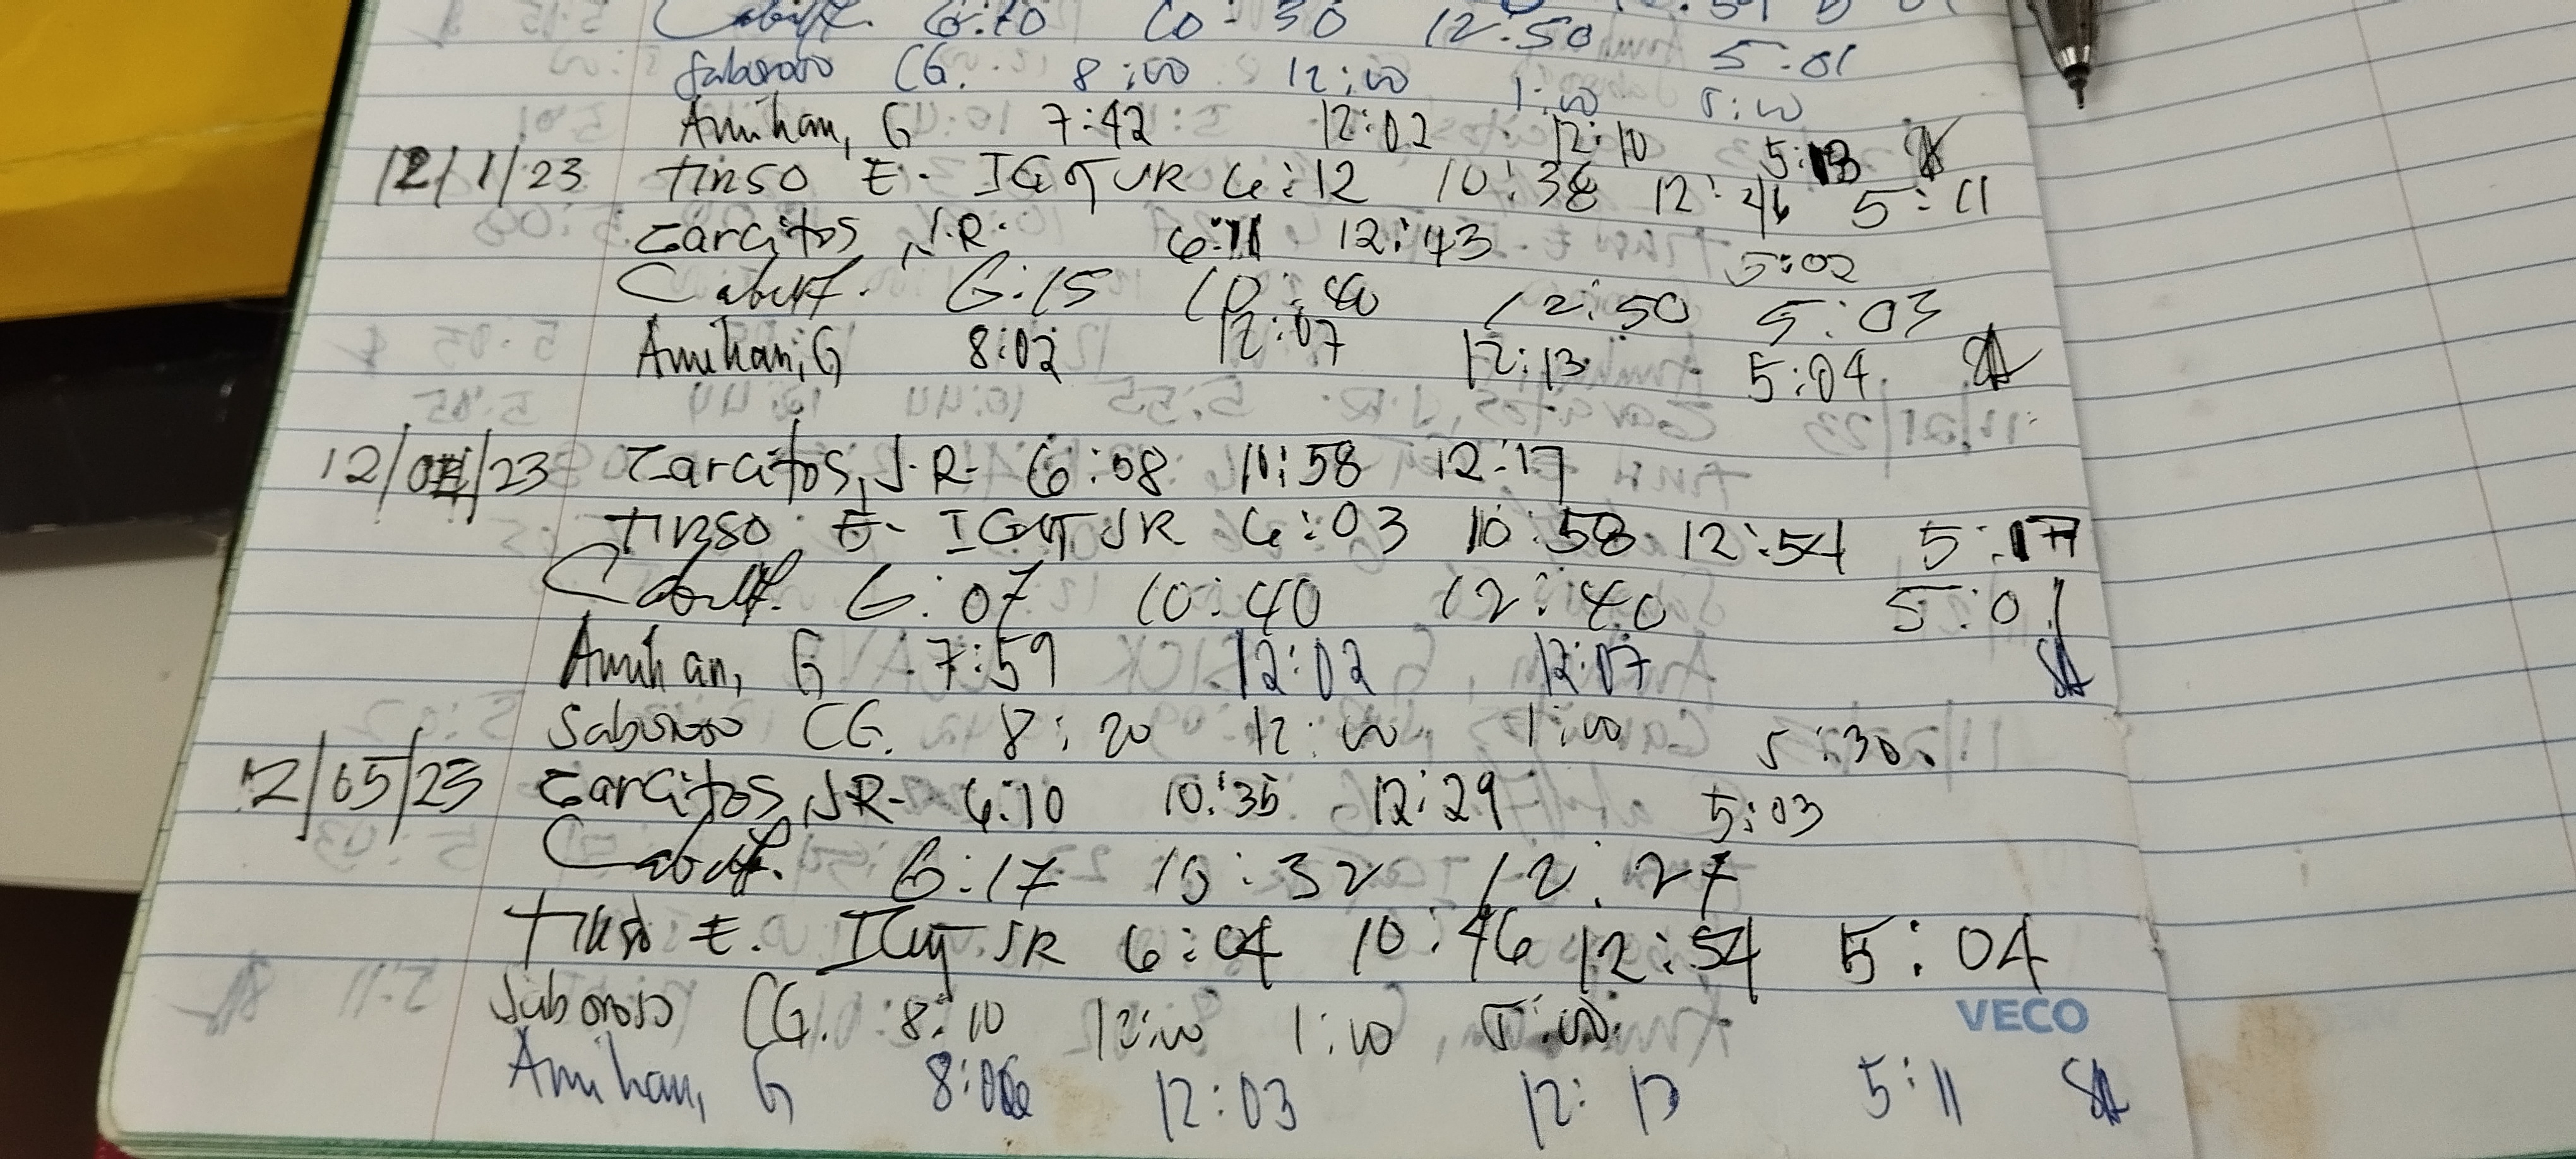 6:10 10:30 12:50 5:01
Saboroso CG. 8:00 12:00 1:00 5:00
Amihan, G 7:42 12:02 12:10 5:13
12/1/23 TIRSO E. IGOT JR 6:12 10:38 12:46 5:11
Zarcitos, J.R. 6:11 12:43 5:02
6:15 10:40 12:50 5:03
Amihan, G 8:02 12:07 12:13 5:04
12/04/23 Zarcitos, J.R. 6:08 11:58 12:17
TIRSO E. IGOT JR 6:03 10:58 12:54 5:17
6:07 10:40 12:40 5:01
Amihan, G 7:59 12:02 12:07
Saboroso CG. 8:20 12:00 1:00 5:30.
12/05/23 Zarcitos, JR. 6:10 10:35 12:29 5:03
6:17 10:32 12:27
TIRSO E. IGOT JR 6:04 10:46 12:54 5:04
Saboroso CG. 8:10 12:00 1:10 5:00
VECO
Amihan, G 8:06 12:03 12:13 5:11